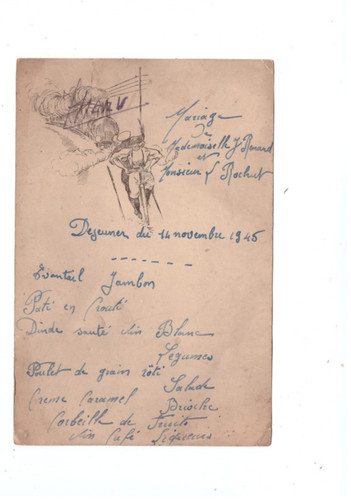 Menu
Mariage
de
Mademoiselle J. Renard
et
Monsieur L Rochut
Dejeuner du 14 novembre 1946
Eventail Jambon
Paté en Crouté
Dinde sauté Vin Blanc
Légumes
Poulet de grain rôti
Salade
Creme Caramel Brioche
Corbeille de Fruits
Vin Café Liqueurs